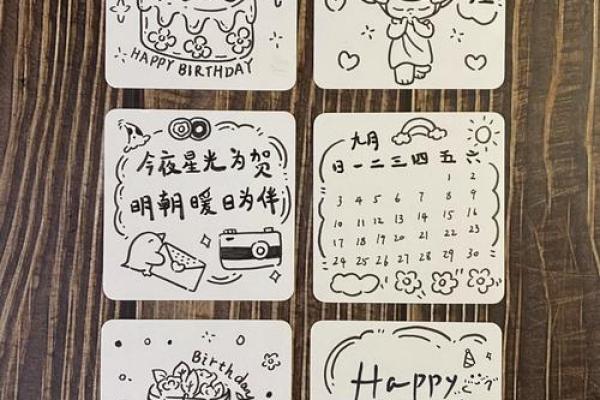 HAPPY BIRTHDAY
今夜星光为贺
明朝暖日为伴
九月
日 一 二 三 四 五 六
1 2
3 4 5 6 7 8 9
10 11 12 13 14 15 16
17 18 19 20 21 22 23
24 25 26 27 28 29 30
Birthday
Happy